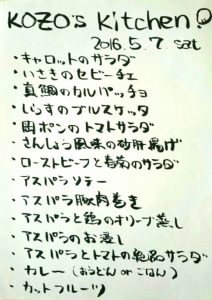 KOZO's Kitchen!
2016.5.7 sat
・キャロットのサラダ
・いさきのセビーチェ
・真鯛のカルパッチョ
・しらすのブルスケッタ
・岡ポンのトマトサラダ
・さんしょう風味の砂肝揚げ
・ローストビーフと春菊のサラダ
・アスパラソテー
・アスパラ豚肉巻き
・アスパラと鶏のオリーブ蒸し
・アスパラのお浸し
・アスパラとトマトの絶品サラダ
・カレー(おうどん or ごはん)
・カットフルーツ